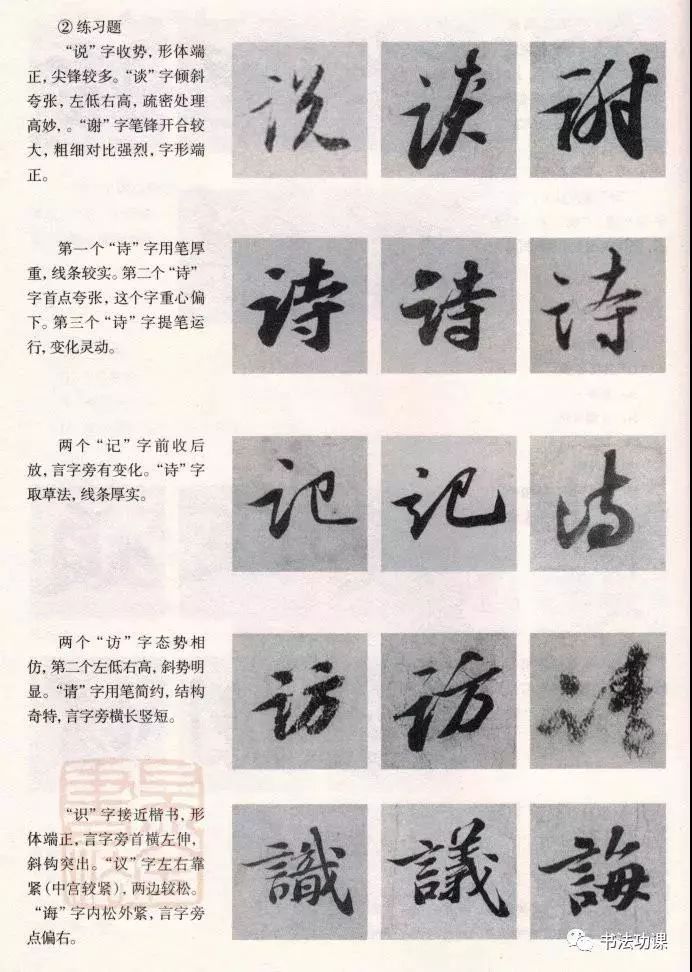 ②练习题
“说”字收势，形体端
正，尖锋较多。“谈”字倾斜
夸张，左低右高，疏密处理
高妙，。“谢”字笔锋开合较
大，粗细对比强烈，字形端
正。
说 谈 谢
第一个“诗”字用笔厚
重，线条较实。第二个“诗”
字首点夸张，这个字重心偏
下。第三个“诗”字提笔运
行，变化灵动。
诗 诗 诗
两个“记”字前收后
放，言字旁有变化。“诗”字
取草法，线条厚实。
记 记 诗
两个“访”字态势相
仿，第二个左低右高，斜势明
显。“请”字用笔简约，结构
奇特，言字旁横长竖短。
访 访 请
“识”字接近楷书，形
体端正，言字旁首横左伸，
斜钩突出。“议”字左右靠
紧（中宫较紧），两边较松。
“诲”字内松外紧，言字旁
点偏右。
識 議 誨
书法功课